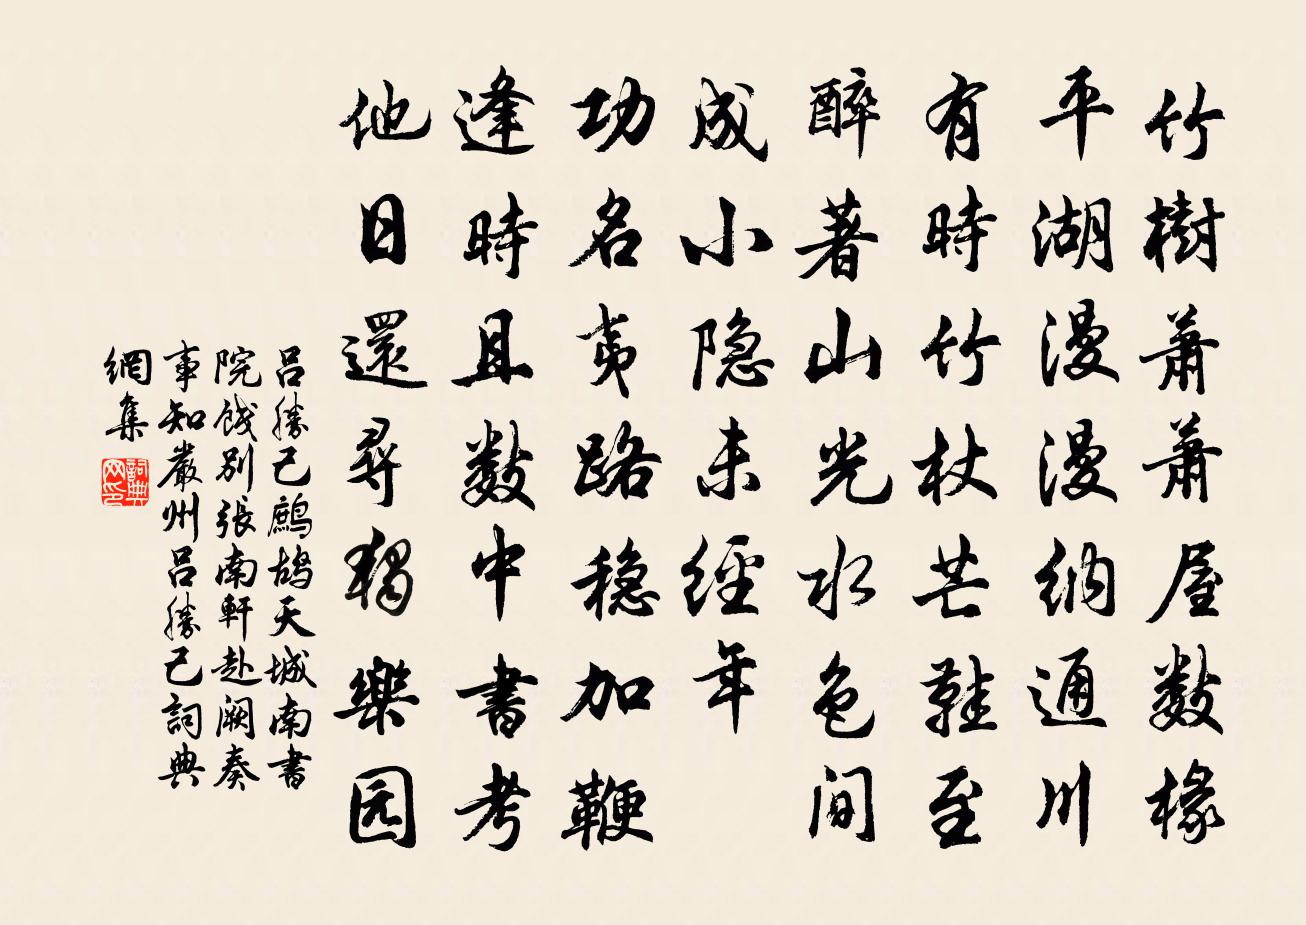 竹樹蕭蕭屋數椽
平湖漫漫納通川
有時竹杖芒鞋至
醉著山光水色間
成小隐未經年
功名夷路稳加鞭
逢時且數中書考
他日還尋獨樂园
呂勝己鷓鴣天城南書
院餞別張南軒赴闕奏
事知嚴州呂勝己詞典
網集
詞典
网印